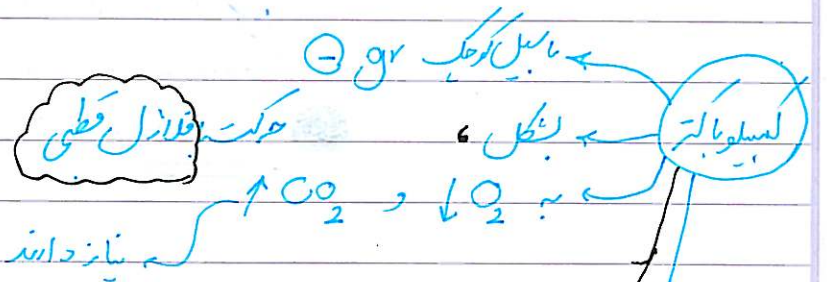 کمپیلوباکتر
← باسیل کوچک gr ⊖
← بشکل ، حرکت: فلاژل قطبی
← به O2 ↓ و CO2 ↑
← نیاز دارند